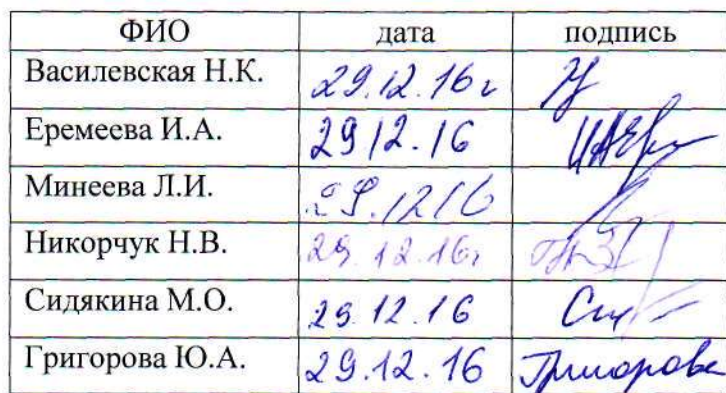 ФИО дата подпись
Василевская Н.К. 29.12.16г
Еремеева И.А. 29 12.16
Минеева Л.И. 29.12 16
Никорчук Н.В. 29.12.16г
Сидякина М.О. 29.12.16
Григорова Ю.А. 29.12.16 Григорова